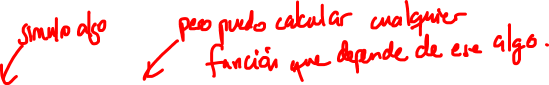 simulo algo
pero puedo calcular cualquier
función que depende de ese algo.